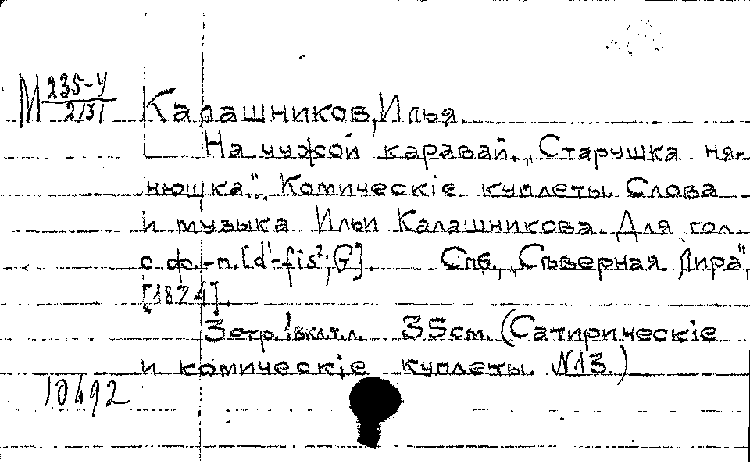 М 235-У
2131
Калашников, Илья.
На чужой каравай. „Старушка ня-
нюшка". Комическiе куплеты. Слова
и музыка Ильи Калашникова. Для гол.
с ф.-п. [d¹-fis²; G]. Спб., „Съверная Лира",
[1874].
3 стр. вкл. т.л. 35 см. (Сатирическiе
и комическiе куплеты. N13.)
10492